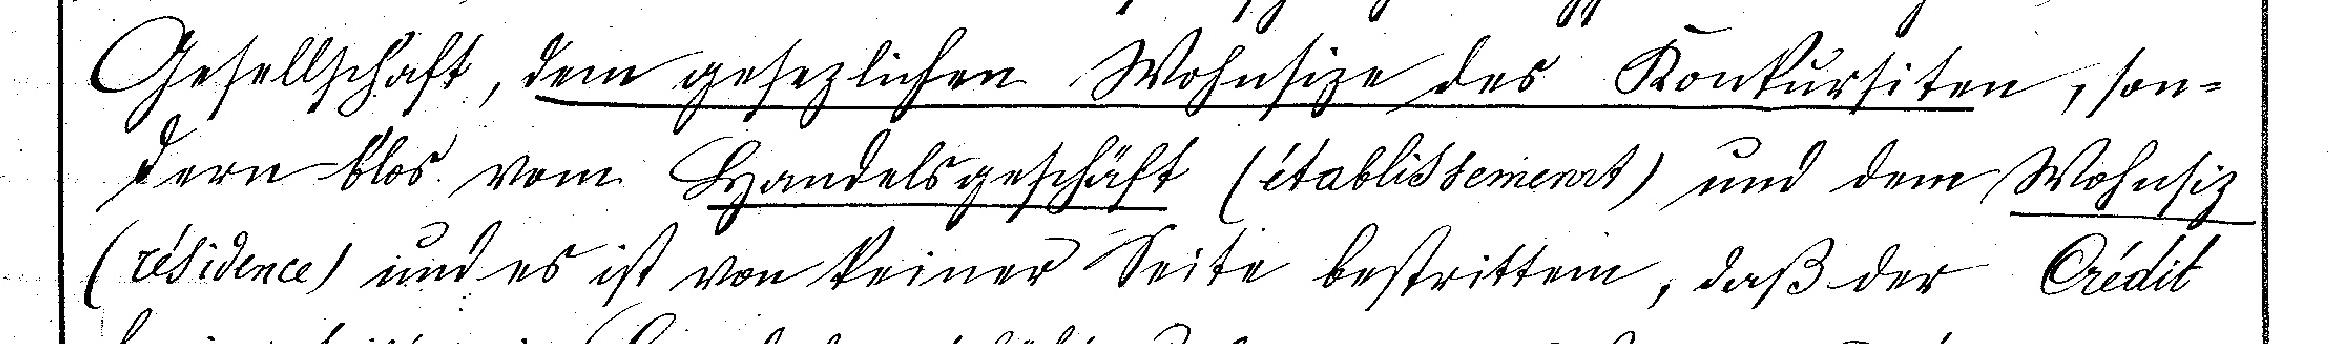 Gesellschaft, dem gesezlichen Wohnsize des Konkursiten, son=
dern blos vom Handelsgeschäft (établissement) und dem Wohnsiz
(résidence) und es ist von keiner Seite bestritten, daß der Crédit